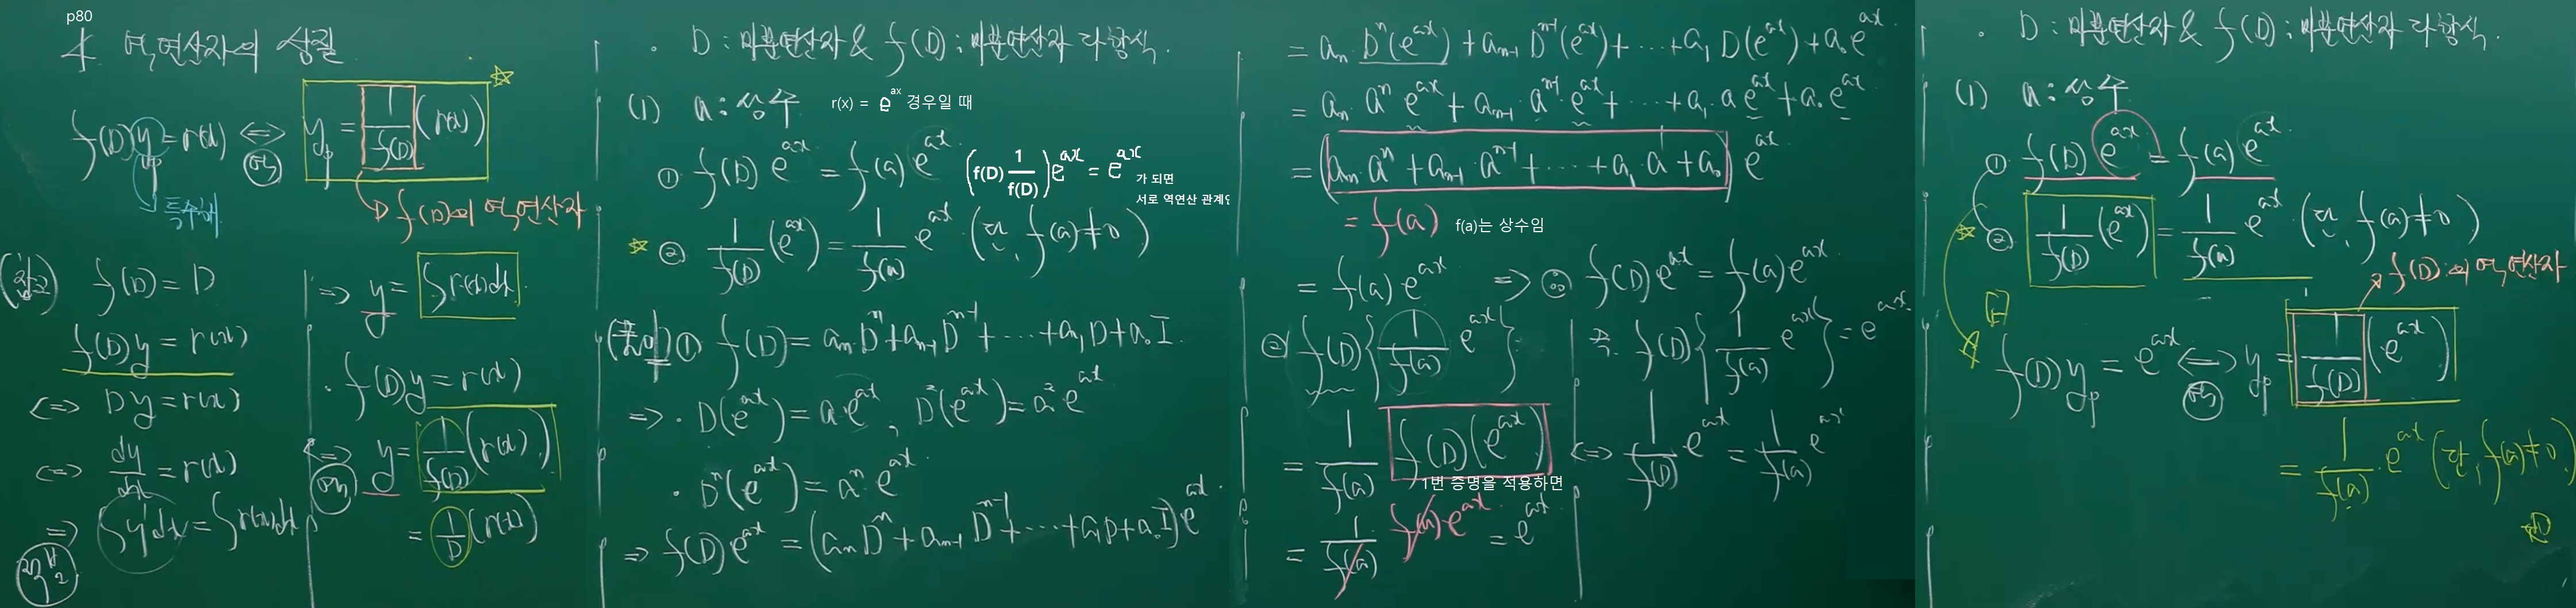 p80
4 역연산자의 성질
f(D)y = r(x) ⇔ y_p = 1/f(D) (r(x)) ☆
역
y_p
특수해
f(D)의 역연산자
(참고) f(D) = D
f(D)y = r(x)
⇔ Dy = r(x)
⇔ dy/dx = r(x)
⇒ ∫y'dx = ∫r(x)dx
⇒ y = ∫r(x)dx
· f(D)y = r(x)
⇔ y = 1/f(D) (r(x))
역
= 1/D (r(x))
· D : 미분연산자 & f(D) : 미분연산자 다항식.
(1) a : 상수
r(x) = e^ax 경우일 때
① f(D) e^ax = f(a) e^ax
(f(D) 1/f(D)) e^ax = e^ax 가 되면
서로 역연산 관계인
☆ ② 1/f(D) (e^ax) = 1/f(a) e^ax (단, f(a) ≠ 0)
(풀이) ① f(D) = a_n D^n + a_n-1 D^n-1 + ⋯ + a_1 D + a_0 I.
⇒ · D(e^ax) = a·e^ax, D²(e^ax) = a² e^ax
· D^n(e^ax) = a^n·e^ax.
⇒ f(D)e^ax = (a_n D^n + a_n-1 D^n-1 + ⋯ + a_1 D + a_0 I) e^ax.
= a_n D^n(e^ax) + a_n-1 D^n-1(e^ax) + ⋯ + a_1 D(e^ax) + a_0 e^ax.
= a_n a^n e^ax + a_n-1 a^n-1 e^ax + ⋯ + a_1 a e^ax + a_0 e^ax
= (a_n a^n + a_n-1 a^n-1 + ⋯ + a_1 a^1 + a_0) e^ax
= f(a)
f(a)는 상수임
= f(a) e^ax ⇒ ∴ f(D)e^ax = f(a)e^ax
② f(D){1/f(a) e^ax}
= 1/f(a) f(D)(e^ax)
1번 증명을 적용하면
= 1/f(a) f(a)e^ax = e^ax
즉 f(D){1/f(a) e^ax} = e^ax
⇔ 1/f(D) e^ax = 1/f(a) e^ax
· D : 미분연산자 & f(D) : 미분연산자 다항식.
(1) a : 상수
① f(D) e^ax = f(a) e^ax
☆ ② 1/f(D) (e^ax) = 1/f(a) e^ax (단, f(a) ≠ 0)
f(D)의 역연산자
f(D) y_p = e^ax ⇔ y_p = 1/f(D) (e^ax)
역
= 1/f(a) · e^ax (단, f(a) ≠ 0)